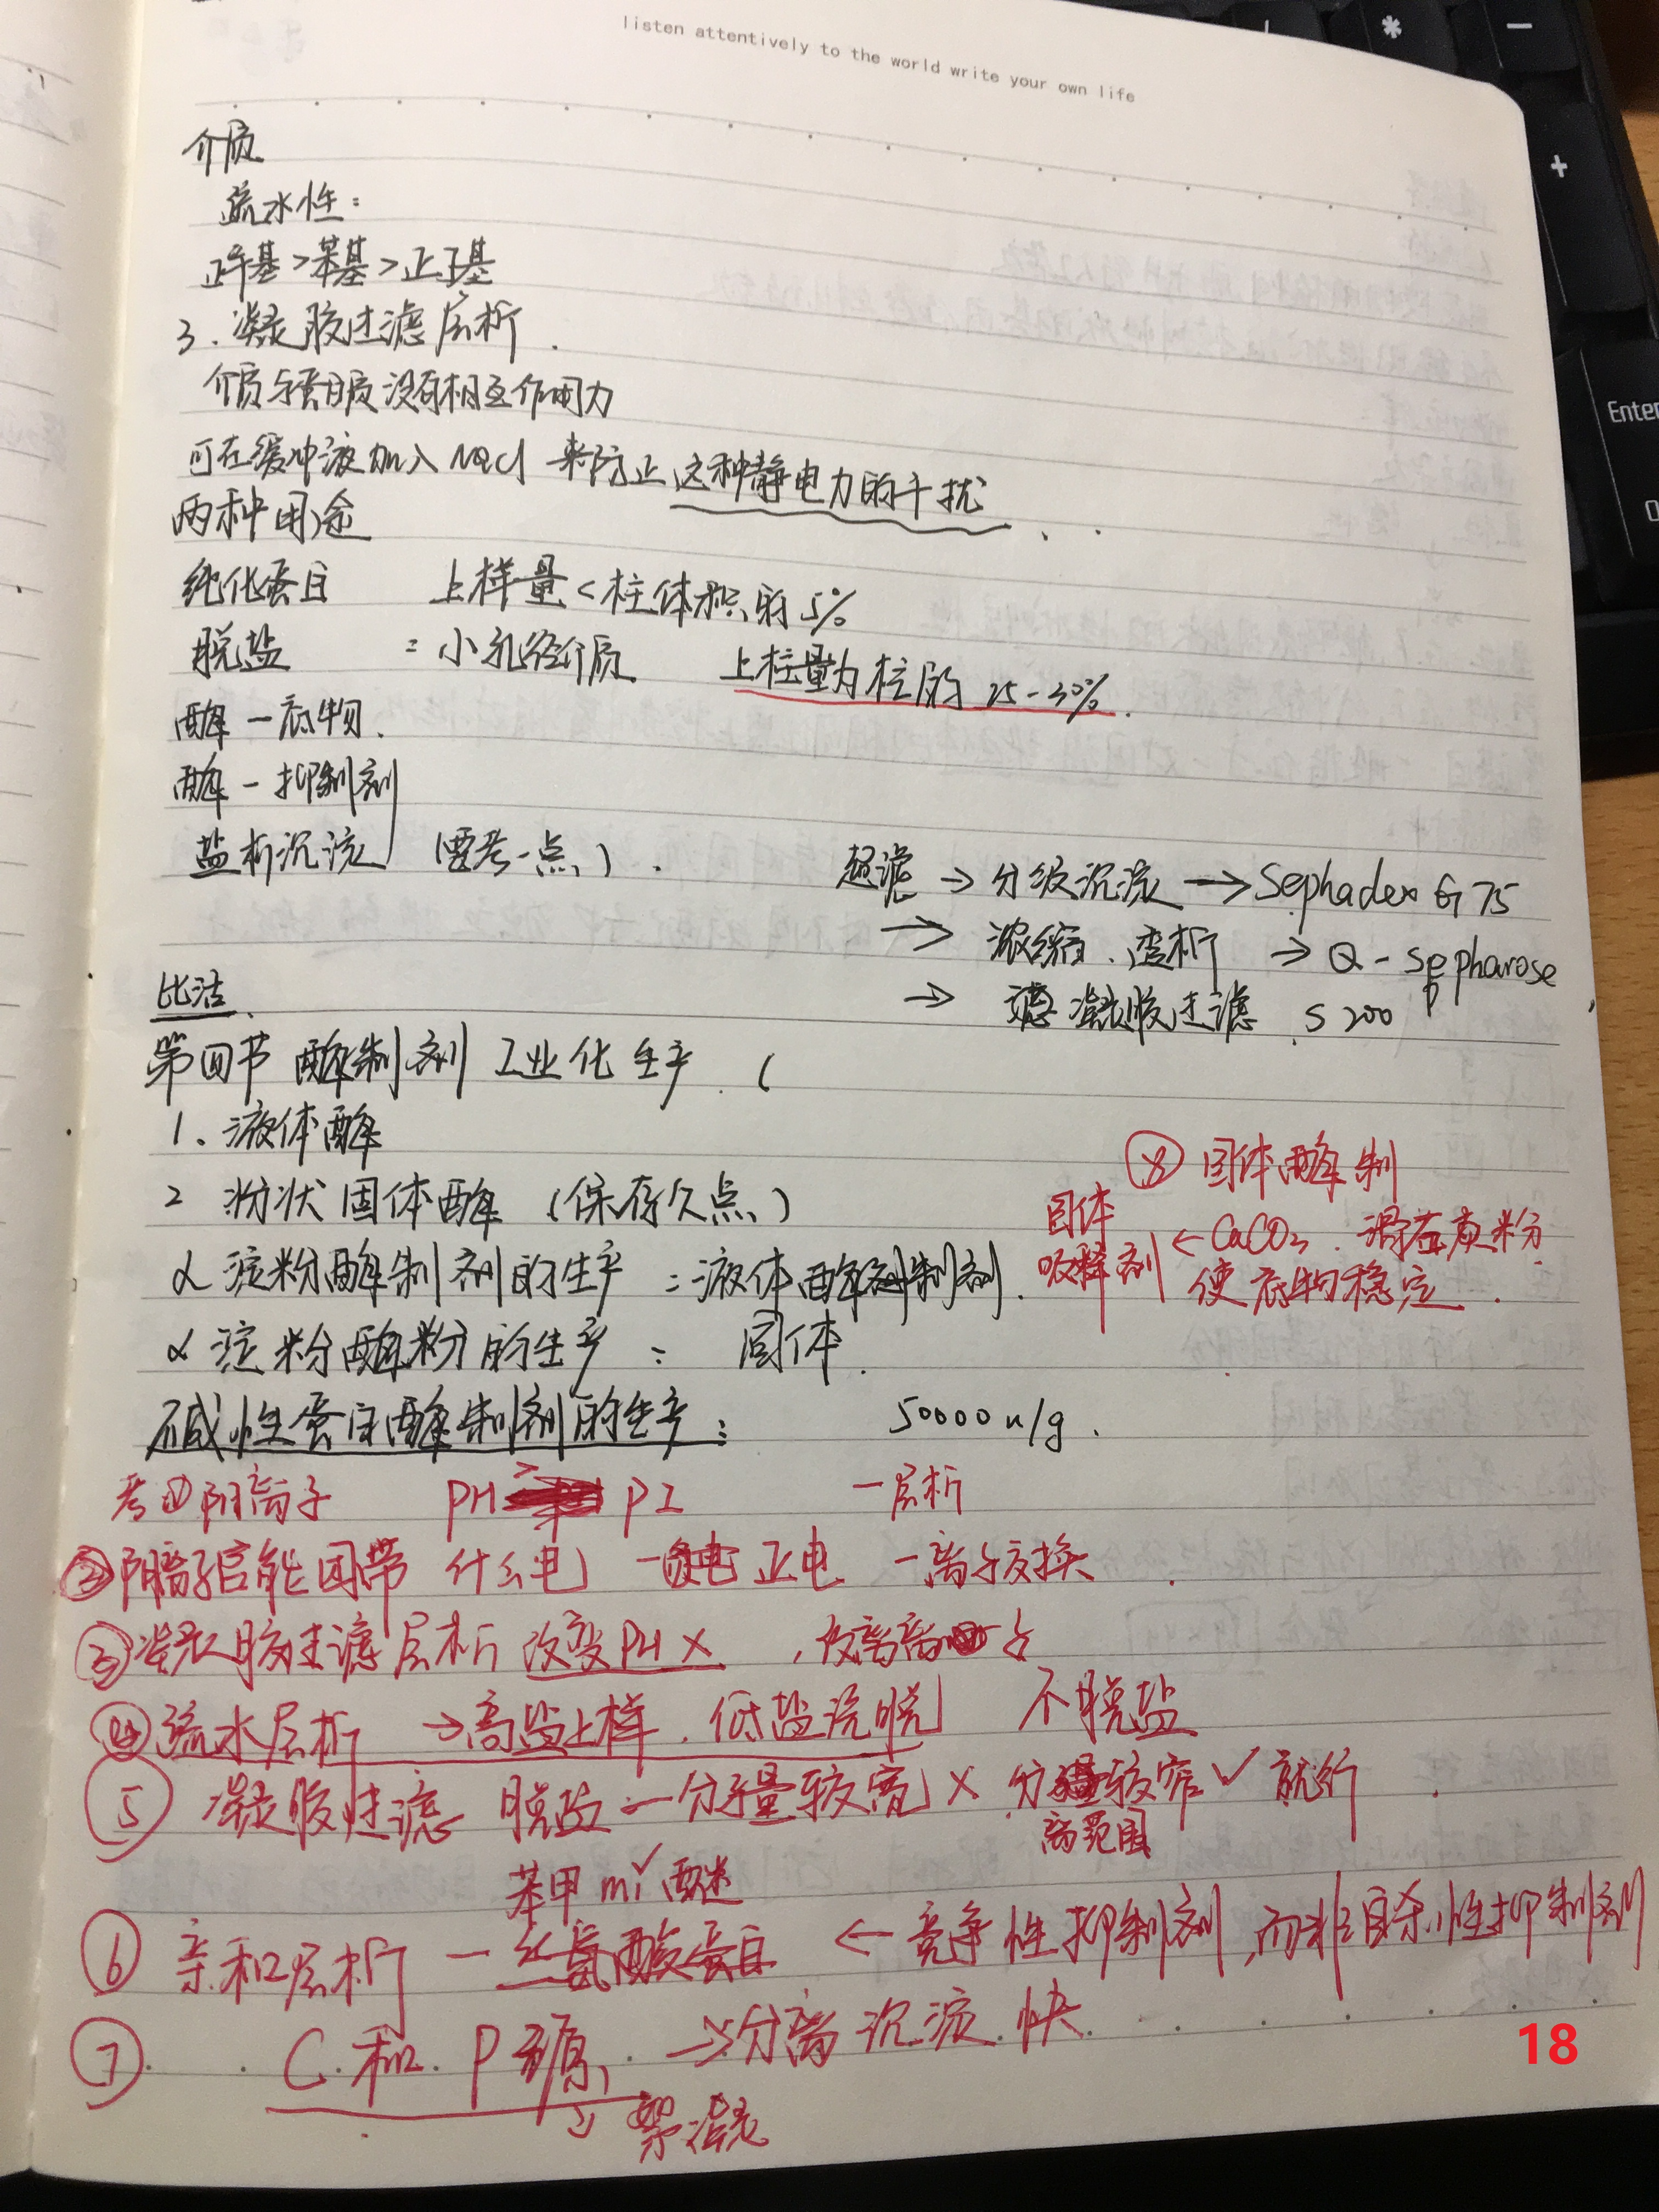 listen attentively to the world write your own life
介质
疏水性:
正辛基>苯基>正丁基
3.凝胶过滤层析.
介质与蛋白质没有相互作用力
可在缓冲液加入NaCl 来防止这种静电力的干扰
两种用途
纯化蛋白 上样量<柱体积的5%
脱盐 : 小孔径介质 上柱量为柱的25-30%.
酶-底物.
酶-抑制剂
盐析沉淀 (要考一点).
超滤→分级沉淀→Sephadex G75
→浓缩.透析→Q-sepharose
→凝胶过滤 S200
比活.
第四节 酶制剂 工业化生产.(
1.液体酶
2 粉状固体酶 (保存久点)
⑧固体酶制
固体
吸释剂←CaCO3.滑石粉
使底物稳定.
α淀粉酶制剂的生产:液体酶制剂.
α淀粉酶粉的生产: 固体.
碱性蛋白酶制剂的生产: 50000u/g.
考①阴离子 PH > PI -层析
②阴离子官能团带 什么电 - 正电 -离子交换.
③凝胶过滤层析 改变PH×
④疏水层析 →高盐上样.低盐洗脱 不脱盐
⑤ 凝胶过滤 脱盐:-分子量较宽× 分子量较窄✓就行.
范围
苯甲mi✓醚
⑥亲和层析-丝氨酸蛋白←竞争性抑制剂,而非自杀性抑制剂
⑦ C.和P源→分离沉淀快
↓絮凝
18